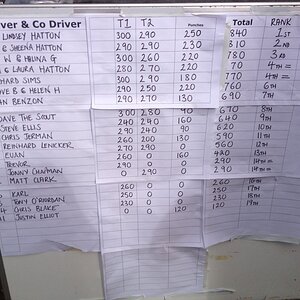 ver & Co Driver T1 T2 Punches Total RANK
LINDSEY HATTON 300 290 250 840 1ST
& SHEENA HATTON 290 290 230 810 2ND
W & HELNA G 300 260 220 780 3RD
& LAURA HATTON 280 270 220 770 4TH =
HARD SIMS 300 290 180 770 4TH =
OVE B & HELEN H 290 250 220 760 6TH
AN BENZON 290 270 130 690 7TH
DAVE THE SCOUT 300 280 90 670 8TH
STEVE ELLIS 240 240 160 640 9TH
CHRIS JERMAN 290 240 90 620 10TH
REINHARD LENICKER 260 200 130 590 11TH
EUAN 270 290 0 560 12TH
TREVOR 260 0 160 420 13TH
JONNY CHAPMAN 290 0 0 290 14TH =
MATT CLARK 0 290 0 290 14TH =
KARL 260 0 260 16TH
TONY O'RIORDAN 250 0 0 250 17TH
CHRIS BLAKE 230 0 0 230 18TH
JUSTIN ELLIOT 0 0 120 120 19TH